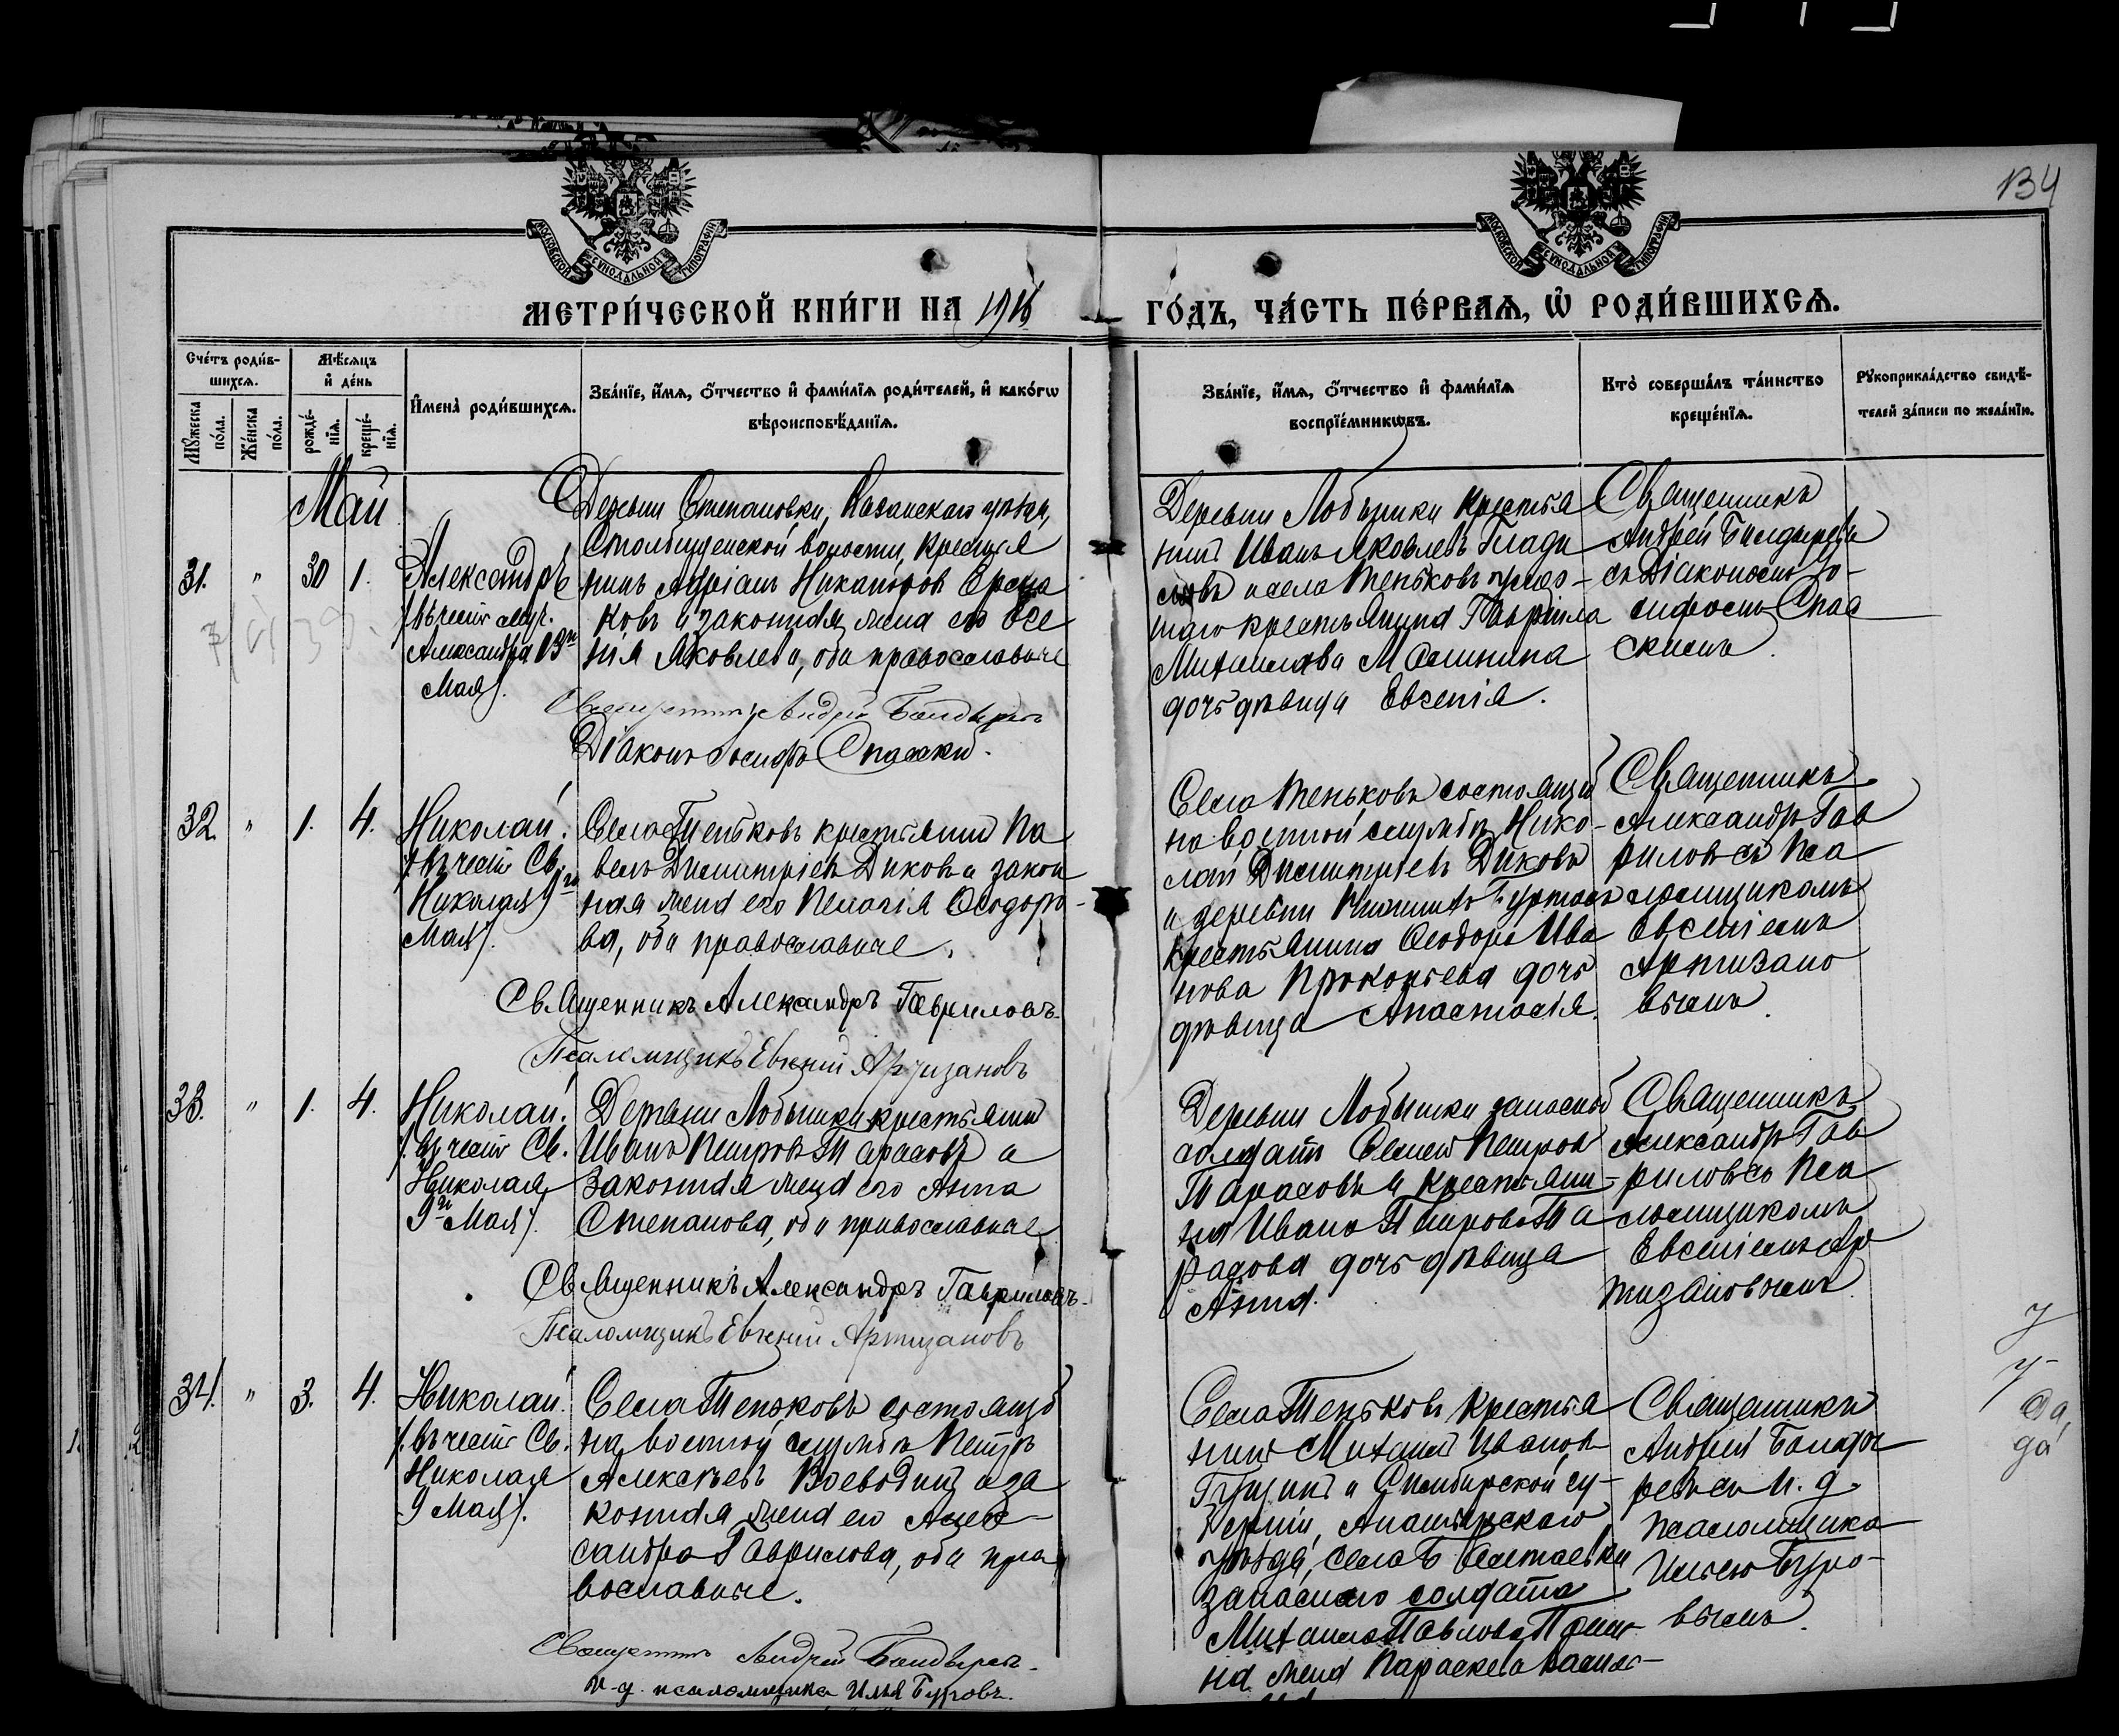 134
МОСКОВСКОЙ СѴНОДАЛЬНОЙ ТИПОГРАФІИ
МОСКОВСКОЙ СѴНОДАЛЬНОЙ ТИПОГРАФІИ
МЕТРИ́ЧЕСКОЙ КНИ́ГИ НА 1916
ГО́ДЪ, ЧА́СТЬ ПЕ́РВАѦ, Ѡ҆ РОДИ́ВШИХСѦ.
Сче́тъ роди́в-
шихсѧ.
Мѣ́сѧцъ
и҆ де́нь
Мꙋ́жеска
по́ла.
Же́нска
по́ла.
рожде́-
нїѧ.
креще́-
нїѧ.
И҆мена̀ роди́вшихсѧ.
Зва́нїе, и҆́мѧ, ѻ҆́тчество и҆ фами́лїѧ роди́телей, и҆ како́гѡ
вѣроисповѣ́данїѧ.
Зва́нїе, и҆́мѧ, ѻ҆́тчество и҆ фами́лїѧ
воспрїе́мникѡвъ.
Кто̀ соверша́лъ та́инство
креще́нїѧ.
Рꙋкоприкла́дство свидѣ́-
телей за́писи по жела́нїю.
Май
31. " 30 1.
Александръ
(въ честь муч.
Александра 13го
Мая).
Деревни Степановки, Казанскаго уѣзда,
Столбищенской волости, крестья
нинъ Адріанъ Никаноровъ
ковъ и законная жена его Ксе
нія Яковлева, оба православные
Священникъ Андрей Болдыревъ
Діаконъ Іосифъ Спасскій.
Деревни Лобышки крестья
нинъ Иванъ Яковлевъ Глады
шевъ и села Теньковъ умер-
шаго крестьянина Гавріила
Михайлова Малинина
дочь дѣвица Евгенія.
Священникъ
Андрей Болдыревъ
съ Діакономъ Іо-
сифомъ Спас
скимъ.
32. " 1. 4.
Николай.
(въ честь Св.
Николая 9го
Мая).
Села Теньковъ крестьянинъ Па
велъ Димитріевъ Диковъ и закон
ная жена его Пелагія Ѳеодоро-
ва, оба православные.
Священникъ Александръ Гавриловъ.
Псаломщикъ Евгеній Артизановъ
Села Теньковъ состоящій
на военной службѣ Нико-
лай Димитріевъ Диковъ
и деревни
крестьянина Ѳеодора Ива
нова Прокопьева дочь
дѣвица Анастасія.
Священникъ
Александръ Гав
риловъ съ Пса
ломщикомъ
Евгеніемъ
Артизано
вымъ.
33. " 1. 4.
Николай.
(въ честь Св.
Николая
9го Мая).
Деревни Лобышки крестьянинъ
Иванъ Петровъ Тарасовъ и
законная жена его Анна
Степанова, оба православные
Священникъ Александръ Гавриловъ.
Псаломщикъ Евгеній Артизановъ
Деревни Лобышки запасной
солдатъ Семенъ Петровъ
Тарасовъ и крестьяни-
на Ивана Петрова Та
расова дочь дѣвица
Анна.
Священникъ
Александръ Гав
риловъ съ Пса
ломщикомъ
Евгеніемъ Ар
тизановымъ.
34. " 3. 4.
Николай.
(въ честь Св.
Николая
9 Мая).
Села Теньковъ состоящій
на военной службѣ Петръ
Алексѣевъ Воеводинъ и за
конная жена его Алек-
сандра Гаврилова, оба пра
вославные.
Священникъ Андрей Болдыревъ.
И. д. псаломщика Илья Буровъ.
Села Теньковъ крестья
нинъ Михаилъ Ивановъ
Гущинъ и Симбирской гу-
берніи,
уѣзда, села
запаснаго солдата
Михаила Павлова
на жена Параскева
Священникъ
Андрей Болды
ревъ съ И. д.
псаломщика
Ильею Буро-
вымъ.